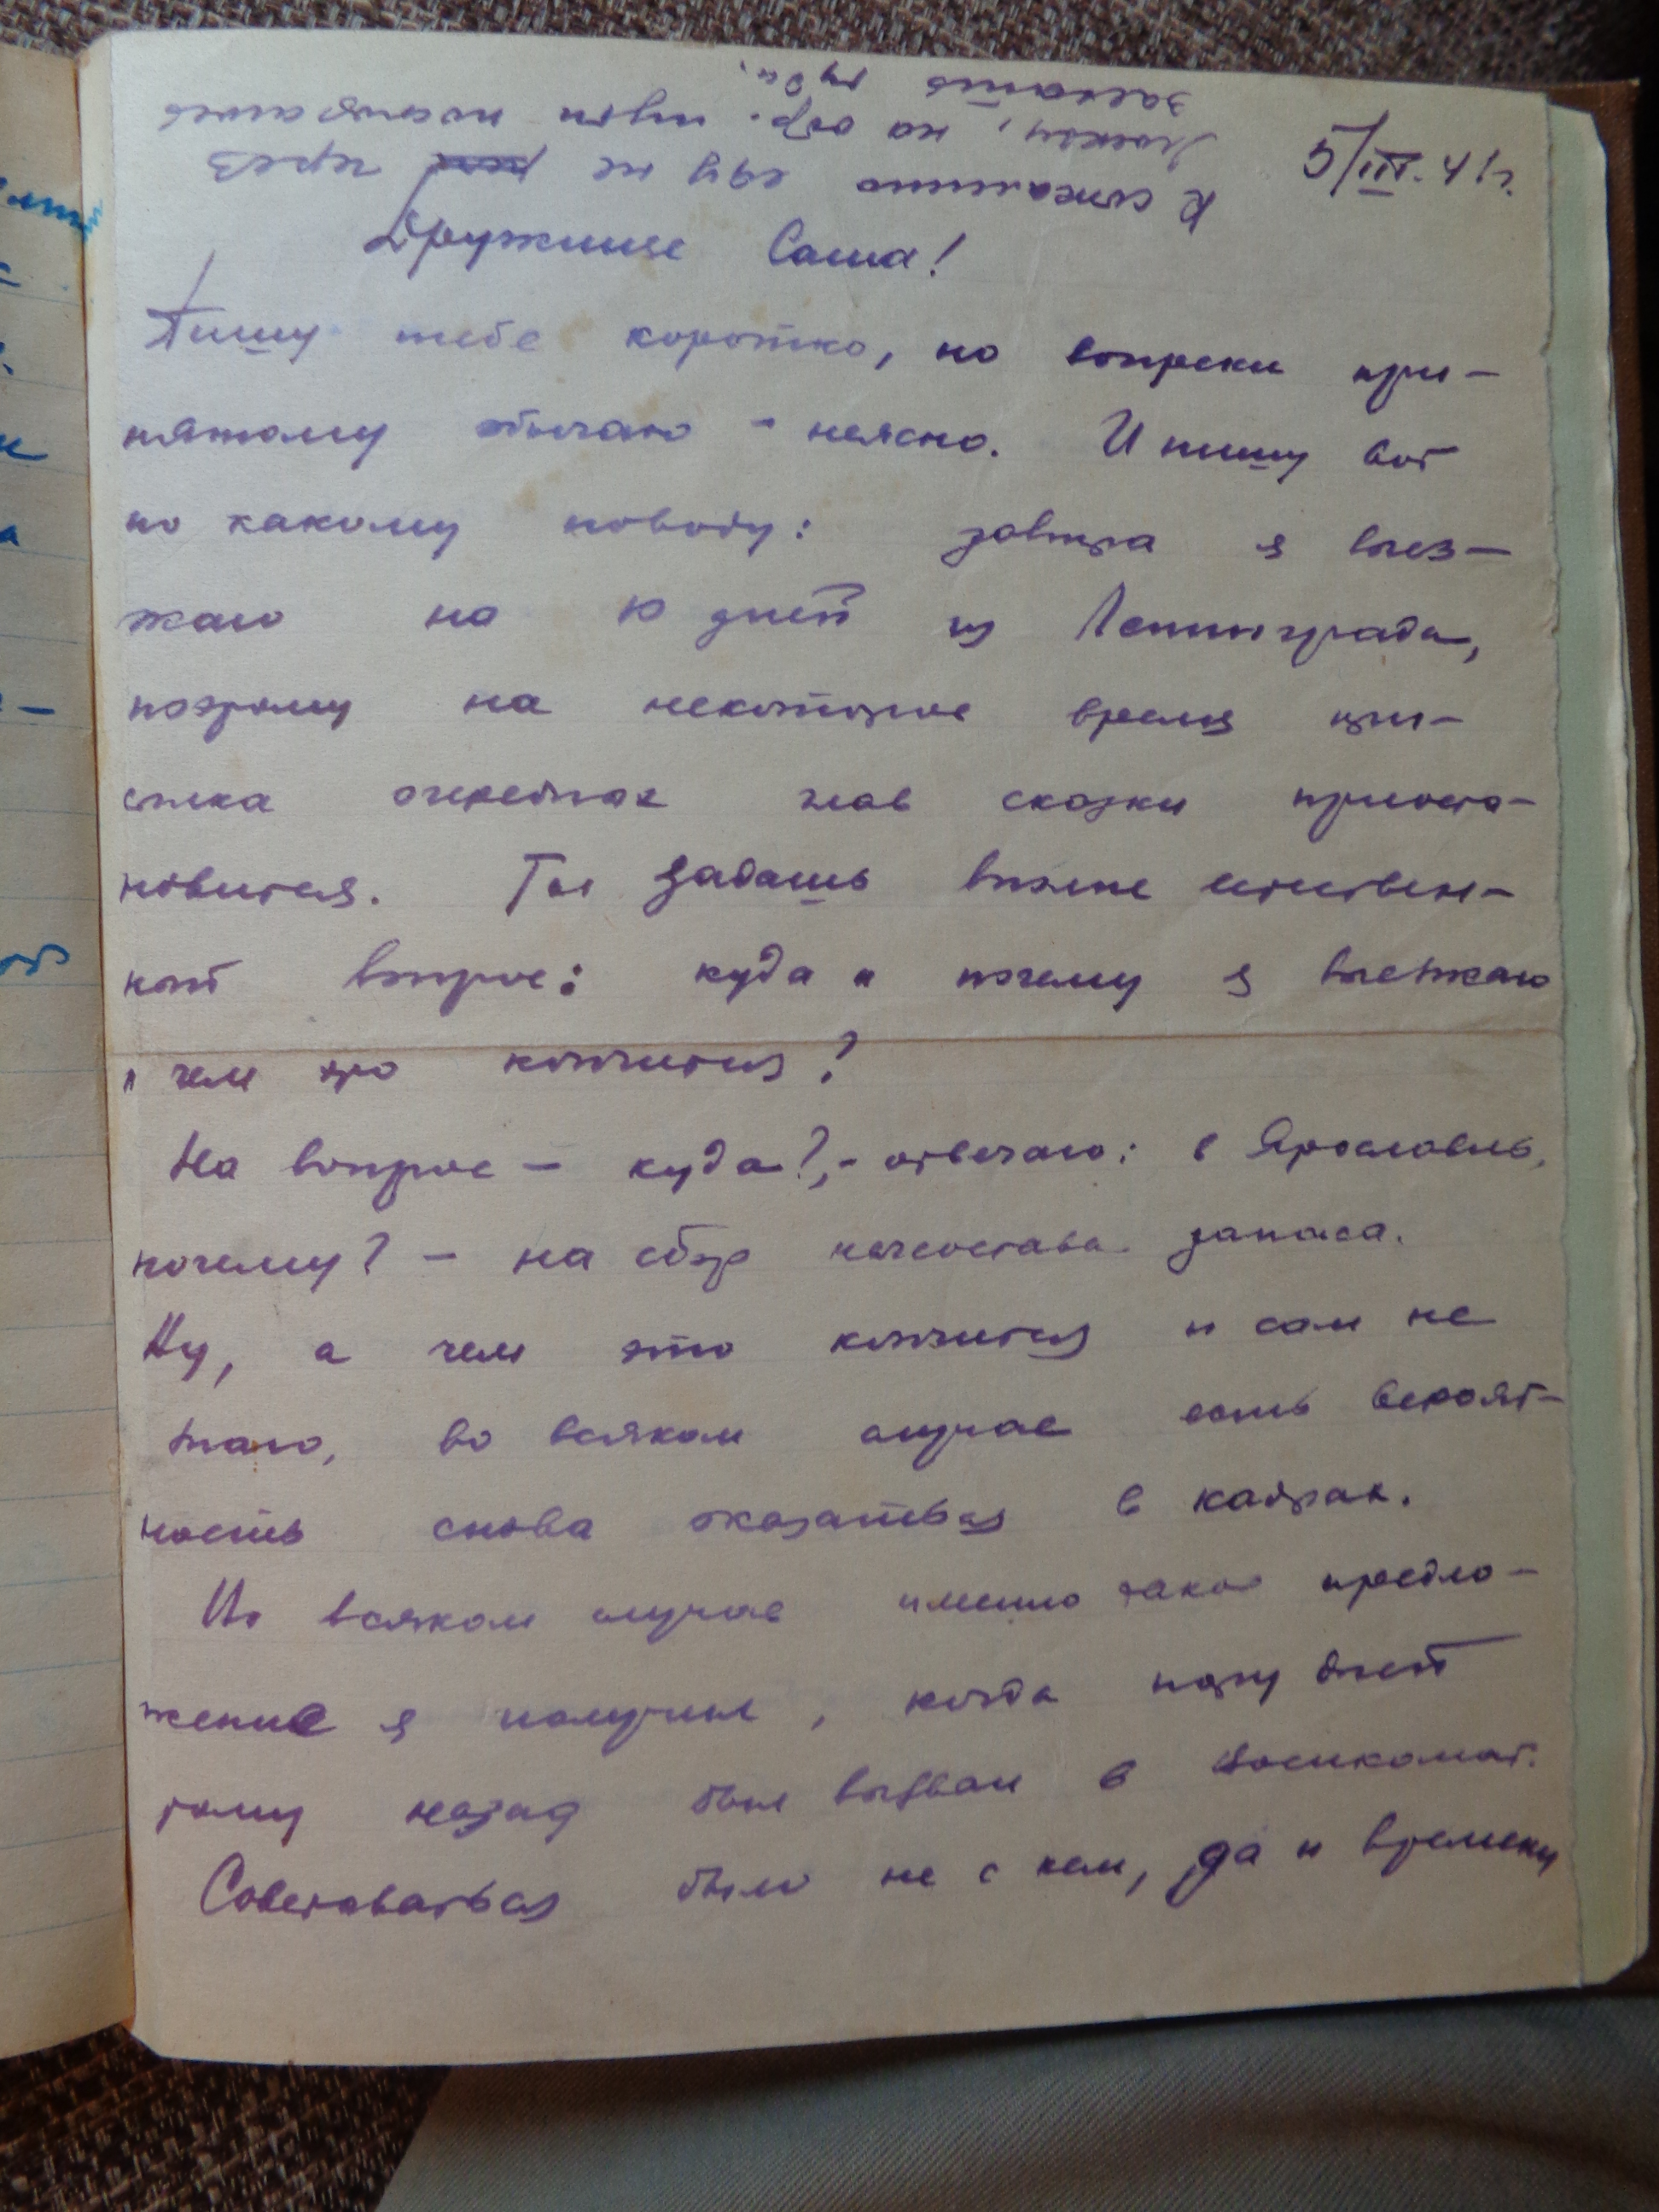 5/III. 41 г.
К сожалению еду не через
Москву, на обр. пути постараюсь
заехать туда.
Дружище Саша!
Пишу тебе коротко, но вопреки при-
нятому обычаю - неясно. И пишу вот
по какому поводу: завтра я выез-
жаю на 10 дней из Ленинграда,
поэтому на некоторое время при-
сылка очередных глав сказки приоста-
новится. Ты задашь вполне естествен-
ный вопрос: куда и почему я выезжаю
и чем это кончится?
На вопрос - куда?, - отвечаю: в Ярославль,
почему? - на сбор начсостава запаса.
Ну, а чем это кончится и сам не
знаю, во всяком случае есть вероят-
ность снова оказаться в кадрах.
Во всяком случае именно такое предло-
жение я получил, когда пару дней
тому назад был вызван в военкомат.
Советоваться было не с кем, да и времени